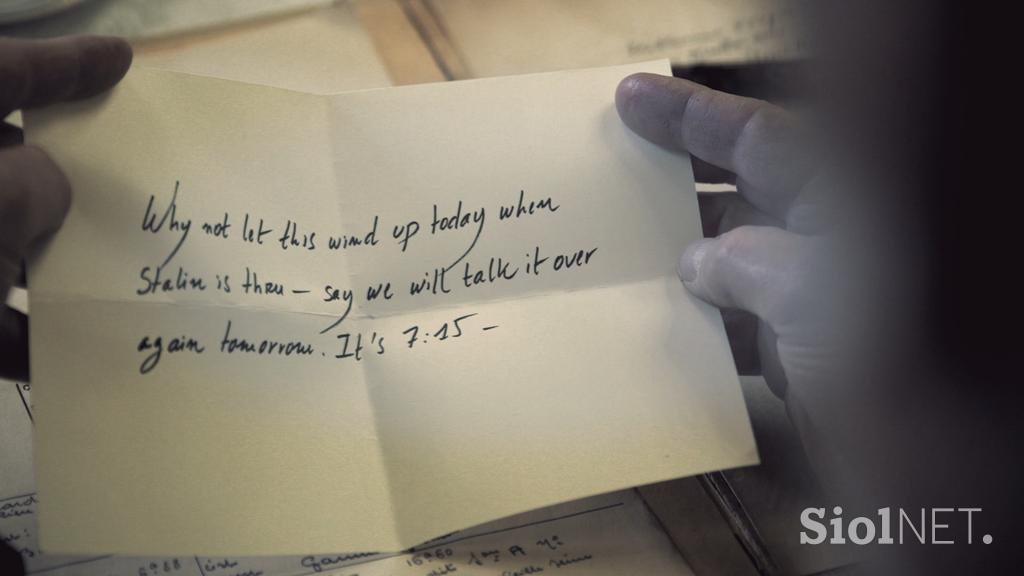 Why not let this wind up today when
Stalin is thru – say we will talk it over
again tomorrow. It's 7:15 –
SiolNET.